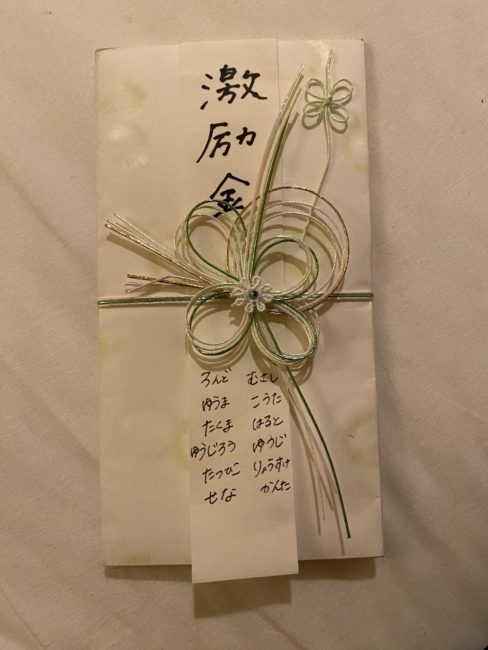 激励金
ろんど むさし
ゆうま こうた
たくま はると
ゆうじろう ゆうじ
たつひこ りょうすけ
せな かんた